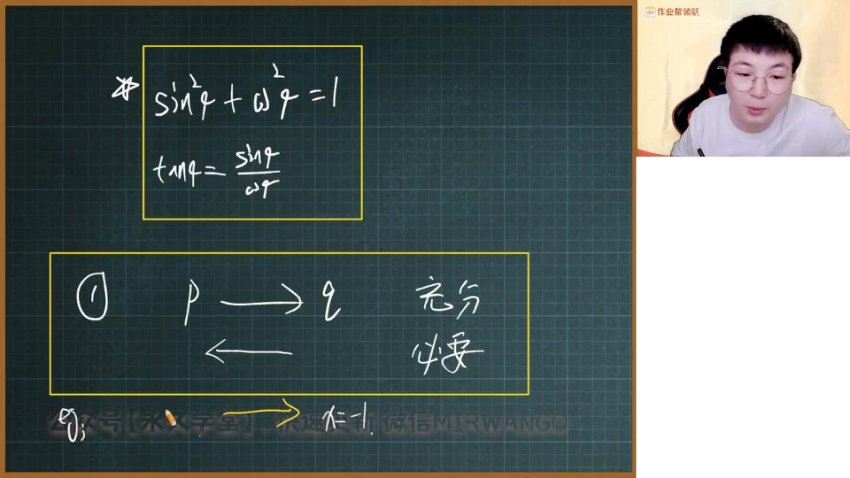 作业帮领航
sin²φ + cosφ² = 1
tanφ = sinφ/cosφ
① p → q 充分
← 必要
eg: → x=-1.
公众号【永久学堂】 微信MIRWANGO